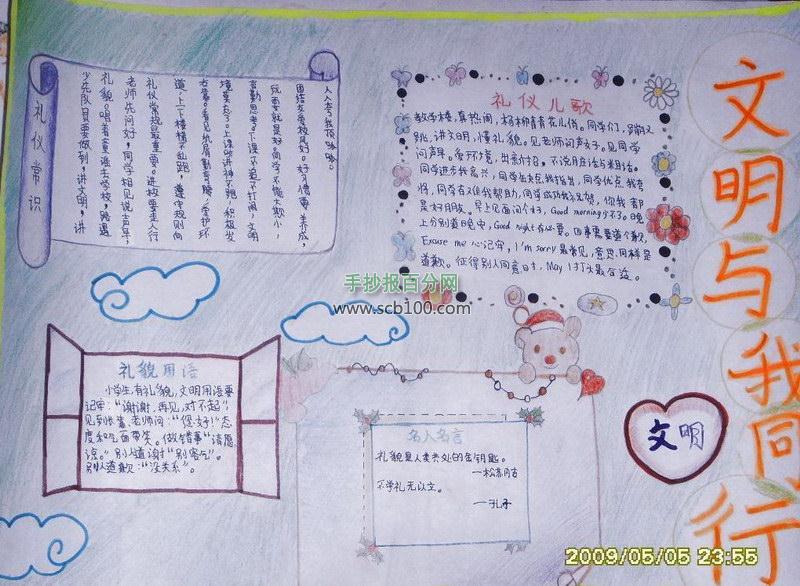 文明与我同行
礼仪常识
少先队员要做到,讲文明,讲
礼貌。唱着喜谣去学校,路遇
老师先问好,同学相见说声早,
礼仪常规最重要。进校要走人行
道,上下楼梯不乱跑,遵守规则向
右靠。看见纸屑勤弯腰,爱护环
境莫忘了。上课 积极发
言勤思考。下课不追不打闹,文明
玩耍就是好。同学不能大欺小,
团结友爱 好。好习惯要养成,
人人夸我顶呱呱。
礼仪儿歌
教学楼,真热闹,杨柳青青花儿俏。同学们,蹦又
跳,讲文明,懂礼貌。见老师问声好。见同学
问声早。爱环境,
同学进步我高兴, 同学优点,我
同学有难我帮助,同学成功我祝贺,你我都
是好朋友。早上见面问个好,Good morning少不了。晚
上分别道晚安,Good night 有必要。
Excuse me 心记牢,I'm sorry最常见,意思同样是
道歉。征得别人同意时,May I 打头最合适。
手抄报百分网
www.scb100.com
礼貌用语
小学生,有礼貌,文明用语要
记牢:“谢谢,再见,对不起”,
见到长辈,老师问:“您好!”态
度和气面带笑。做错事“请原
谅。”别人道谢“别客气”。
别人道歉:“没关系”。
名人名言
礼貌是人类共处的金钥匙。
——松苏内吉
不学礼无以立。
——孔子
文明
2009/05/05 23:55